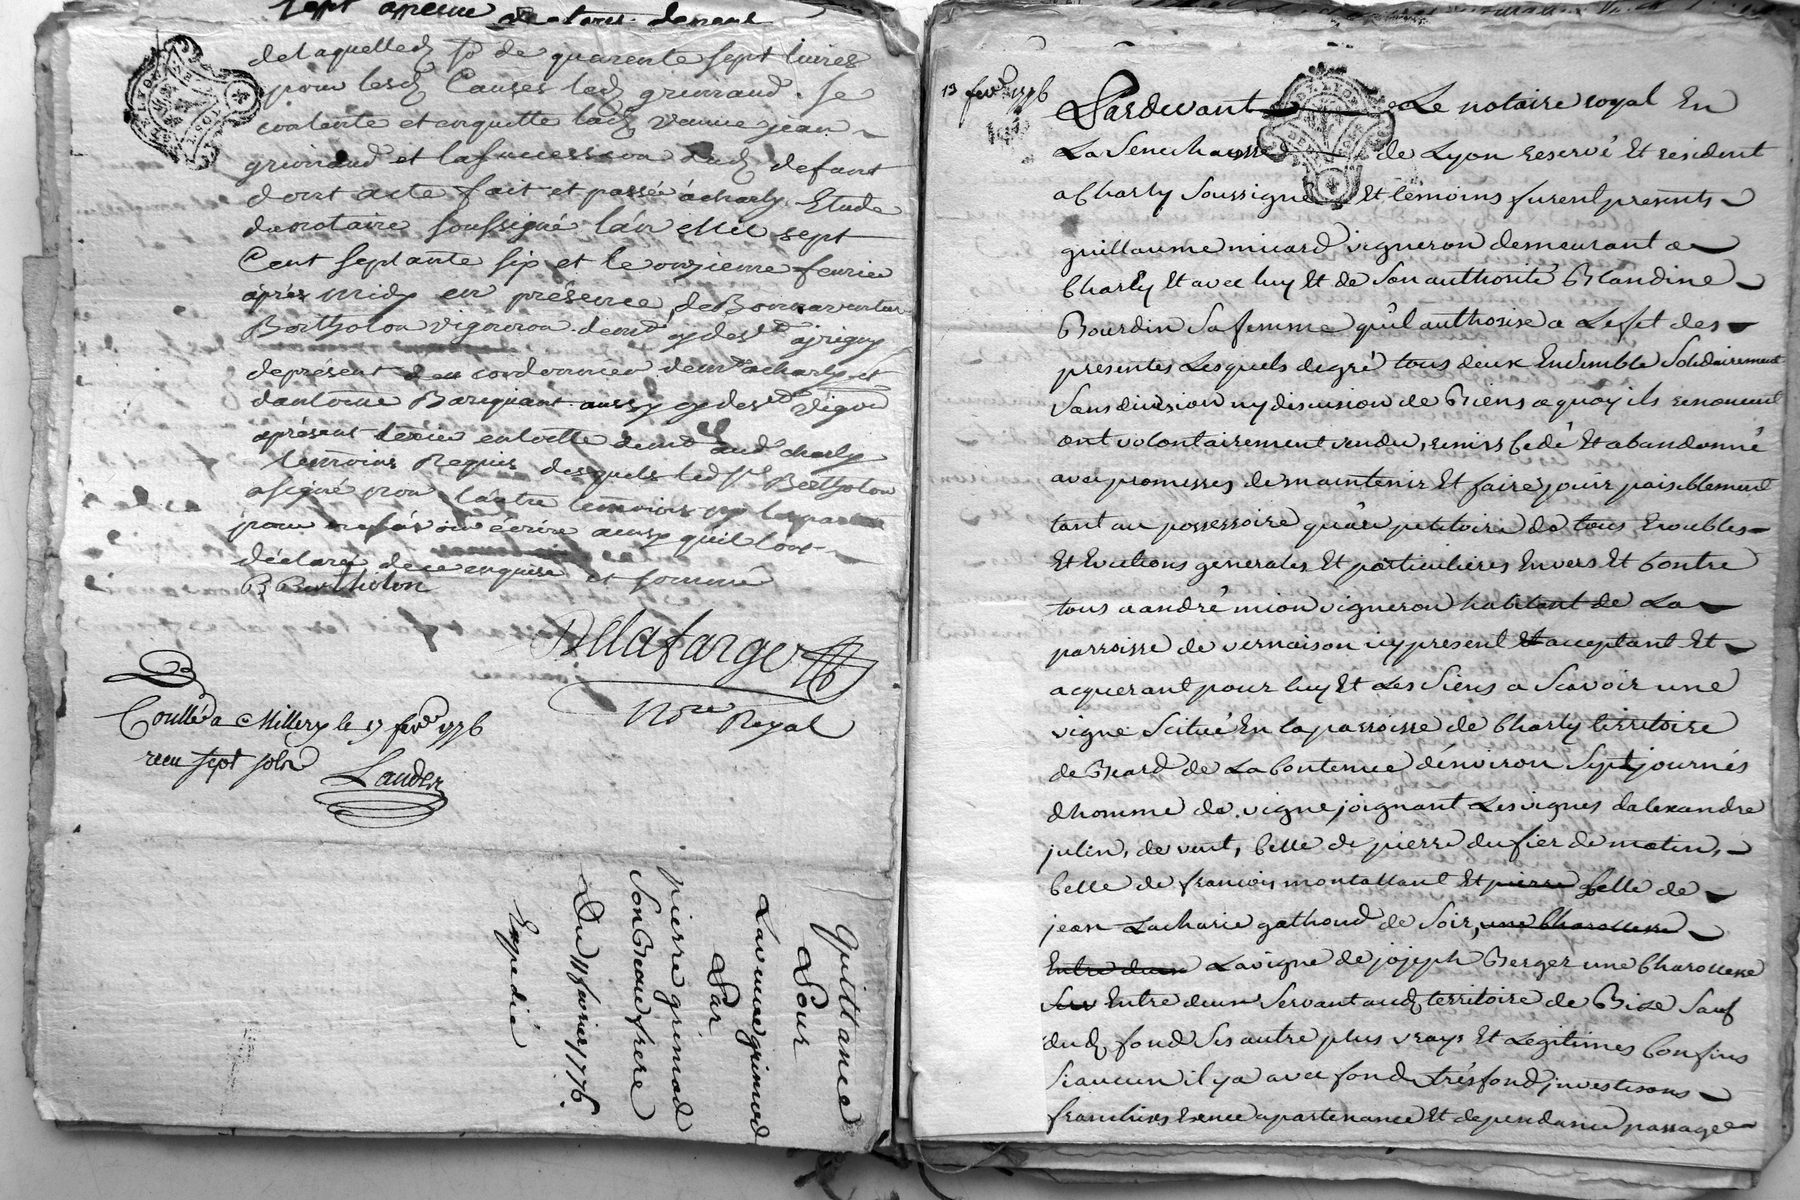 delaquelled. so. de quarente sept livres
pour lesd. Causes led. grimaud. Se
contente et enquitte lad. veuve jean
grimaud et la succession dud. defunt
dont acte fait et passée à charly Etude
du notaire soussigné l'an mil sept
Cent septante six et le onzieme fevrier
après midy en présence de Bonnaventure
Bertholon vigneron demt. cy devt. a jrigny
déprésent cordonnier demt. a charly et
d'antoine Bariquant aussy cy devt. vigon
aprésent demt. aud. charly
temoins Requis desquels led. sr. Bertholon
a signé non l'autre temoins ny les parties
pour ne sçavoir écrire ainsy qu'il l'ont
déclaré de ce enquise et sommé
B Bertholon
Dellafarge
Nore. Royal
Conllé a Millery le 17 fevr 1776
reçu sept sols
Lander
Quittance
Pour
La veuve grimod
Par
pierre grimod
Son Beau frere
Du 11 fevrier 1776.
Expedié
13 fevr 1776
Pardevant Le notaire royal En
La Senechaussé de Lyon reservé Et resident
a Charly Soussigné Et temoins furent présents
guillaume micard vigneron demeurant a
Charly Et avec luy Et de Son authorité Blandine
Bourdin Sa femme qu'il authorise a L'efet des
présentes Lesquels de gré tous deux Ensemble Solidairement
Sans division ny discusion de Biens a quoy ils renoncent
ont volontairement vendu, remis Cedé Et abandonné
avec promesses de maintenir Et faire jouir paisiblement
tant au possessoire qu'au petitoire de tous troubles
Et Evictions generales Et particulieres Envers Et Contre
tous a andré mion vigneron habitant de La
parroisse de vernaison icy present Et acceptant Et
acquerant pour luy Et Les Siens a Scavoir une
vigne Scitué En la parroisse de Charly territoire
de Beard de La Contenue d'environ Sept journés
d'homme de vigne joignant Les vignes d'alexandre
julin, de vent, Celle de pierre dufier de matin,
Celle de francois montallant Et pierre Celle de
jean Zacharie gathoud de Soir, une Charouesse
Entre deux La vigne de jojeph Berger une Charouesse
Entre deux Servant aud. territoire de Bise Sauf
dud. fond Ses autre plus vrays Et Légitimes Confins
Si aucun il y a avec fond tresfond, investisons
franchises Exence apartenance Et dependance passage